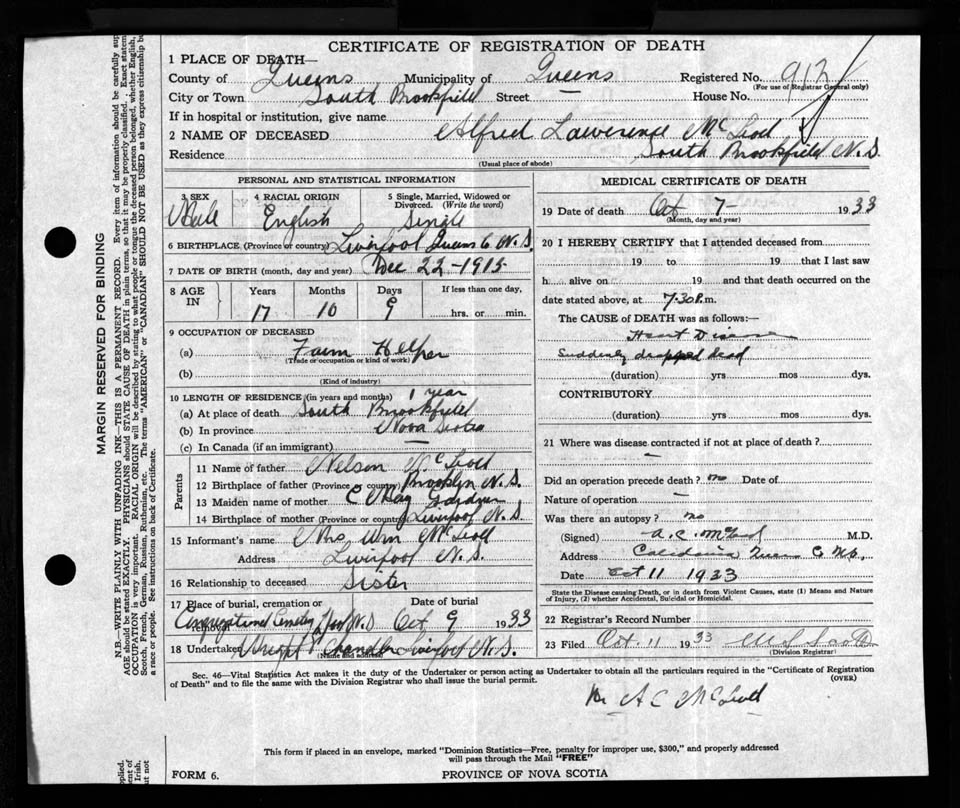 CERTIFICATE OF REGISTRATION OF DEATH
1 PLACE OF DEATH—
County of Queens Municipality of Queens Registered No. 912
(For use of Registrar General only)
City or Town South Brookfield Street House No.
If in hospital or institution, give name
2 NAME OF DECEASED Alfred Lawerence McLeod
Residence South Brookfield N.S.
(Usual place of abode)
PERSONAL AND STATISTICAL INFORMATION
3 SEX 4 RACIAL ORIGIN 5 Single, Married, Widowed or Divorced. (Write the word)
Male English Single
6 BIRTHPLACE (Province or country) Liverpool Queens Co N.S.
7 DATE OF BIRTH (month, day and year) Dec 22-1915
8 AGE IN Years Months Days If less than one day,
17 10 9 hrs. or min.
9 OCCUPATION OF DECEASED
(a) Farm Helper
(Trade or occupation or kind of work)
(b)
(Kind of industry)
10 LENGTH OF RESIDENCE (in years and months) 1 year
(a) At place of death South Brookfield
(b) In province Nova Scotia
(c) In Canada (if an immigrant) —
Parents
11 Name of father Nelson McLeod
12 Birthplace of father (Province or country) Brooklyn N.S.
13 Maiden name of mother C May
14 Birthplace of mother (Province or country) Liverpool N.S.
15 Informant's name Mrs Wm McLeod
Address Liverpool N.S.
16 Relationship to deceased Sister
17 Place of burial, cremation or removal Date of burial
Congregational Cemetery N.S Oct 9 1933
18 Undertaker Chandler Liverpool N.S.
(Name and address)
MEDICAL CERTIFICATE OF DEATH
19 Date of death Oct 7- 1933
(Month, day and year)
20 I HEREBY CERTIFY that I attended deceased from
19 to 19 that I last saw
h alive on 19 and that death occurred on the
date stated above, at 7.30 P.m.
The CAUSE of DEATH was as follows:—
Heart Disease
Suddenly dropped dead
(duration) yrs mos dys.
CONTRIBUTORY
(duration) yrs. mos. dys.
21 Where was disease contracted if not at place of death?
—
Did an operation precede death? no Date of
Nature of operation —
Was there an autopsy? no
(Signed) A.C. McLeod M.D.
Address Caledonia Queens Co N.S.
Date Oct 11 1933
State the Disease causing Death, or in death from Violent Causes, state (1) Means and Nature of Injury, (2) whether Accidental, Suicidal or Homicidal.
22 Registrar's Record Number
23 Filed Oct. 11 1933
(Division Registrar)
Sec. 46—Vital Statistics Act makes it the duty of the Undertaker or person acting as Undertaker to obtain all the particulars required in the "Certificate of Registration
of Death" and to file the same with the Division Registrar who shall issue the burial permit. (OVER)
Dr A C McLeod
This form if placed in an envelope, marked "Dominion Statistics—Free, penalty for improper use, $300," and properly addressed
will pass through the Mail "FREE"
FORM 6. PROVINCE OF NOVA SCOTIA
MARGIN RESERVED FOR BINDING
N.B.—WRITE PLAINLY WITH UNFADING INK—THIS IS A PERMANENT RECORD. Every item of information should be carefully sup
AGE should be stated EXACTLY. PHYSICIANS should STATE CAUSE OF DEATH in plain terms, so that it may be properly classified. Exact statem
OCCUPATION is very important. RACIAL ORIGIN will be described by stating to what people or tongue the deceased person belonged, whether English,
Scotch, French, German, Russian, Ruthenian, etc. The terms "AMERICAN" or "CANADIAN" SHOULD NOT BE USED as they express citizenship b
a race or people. See instructions on back of Certificate.
pplied.
ent of
Irish,
ut not